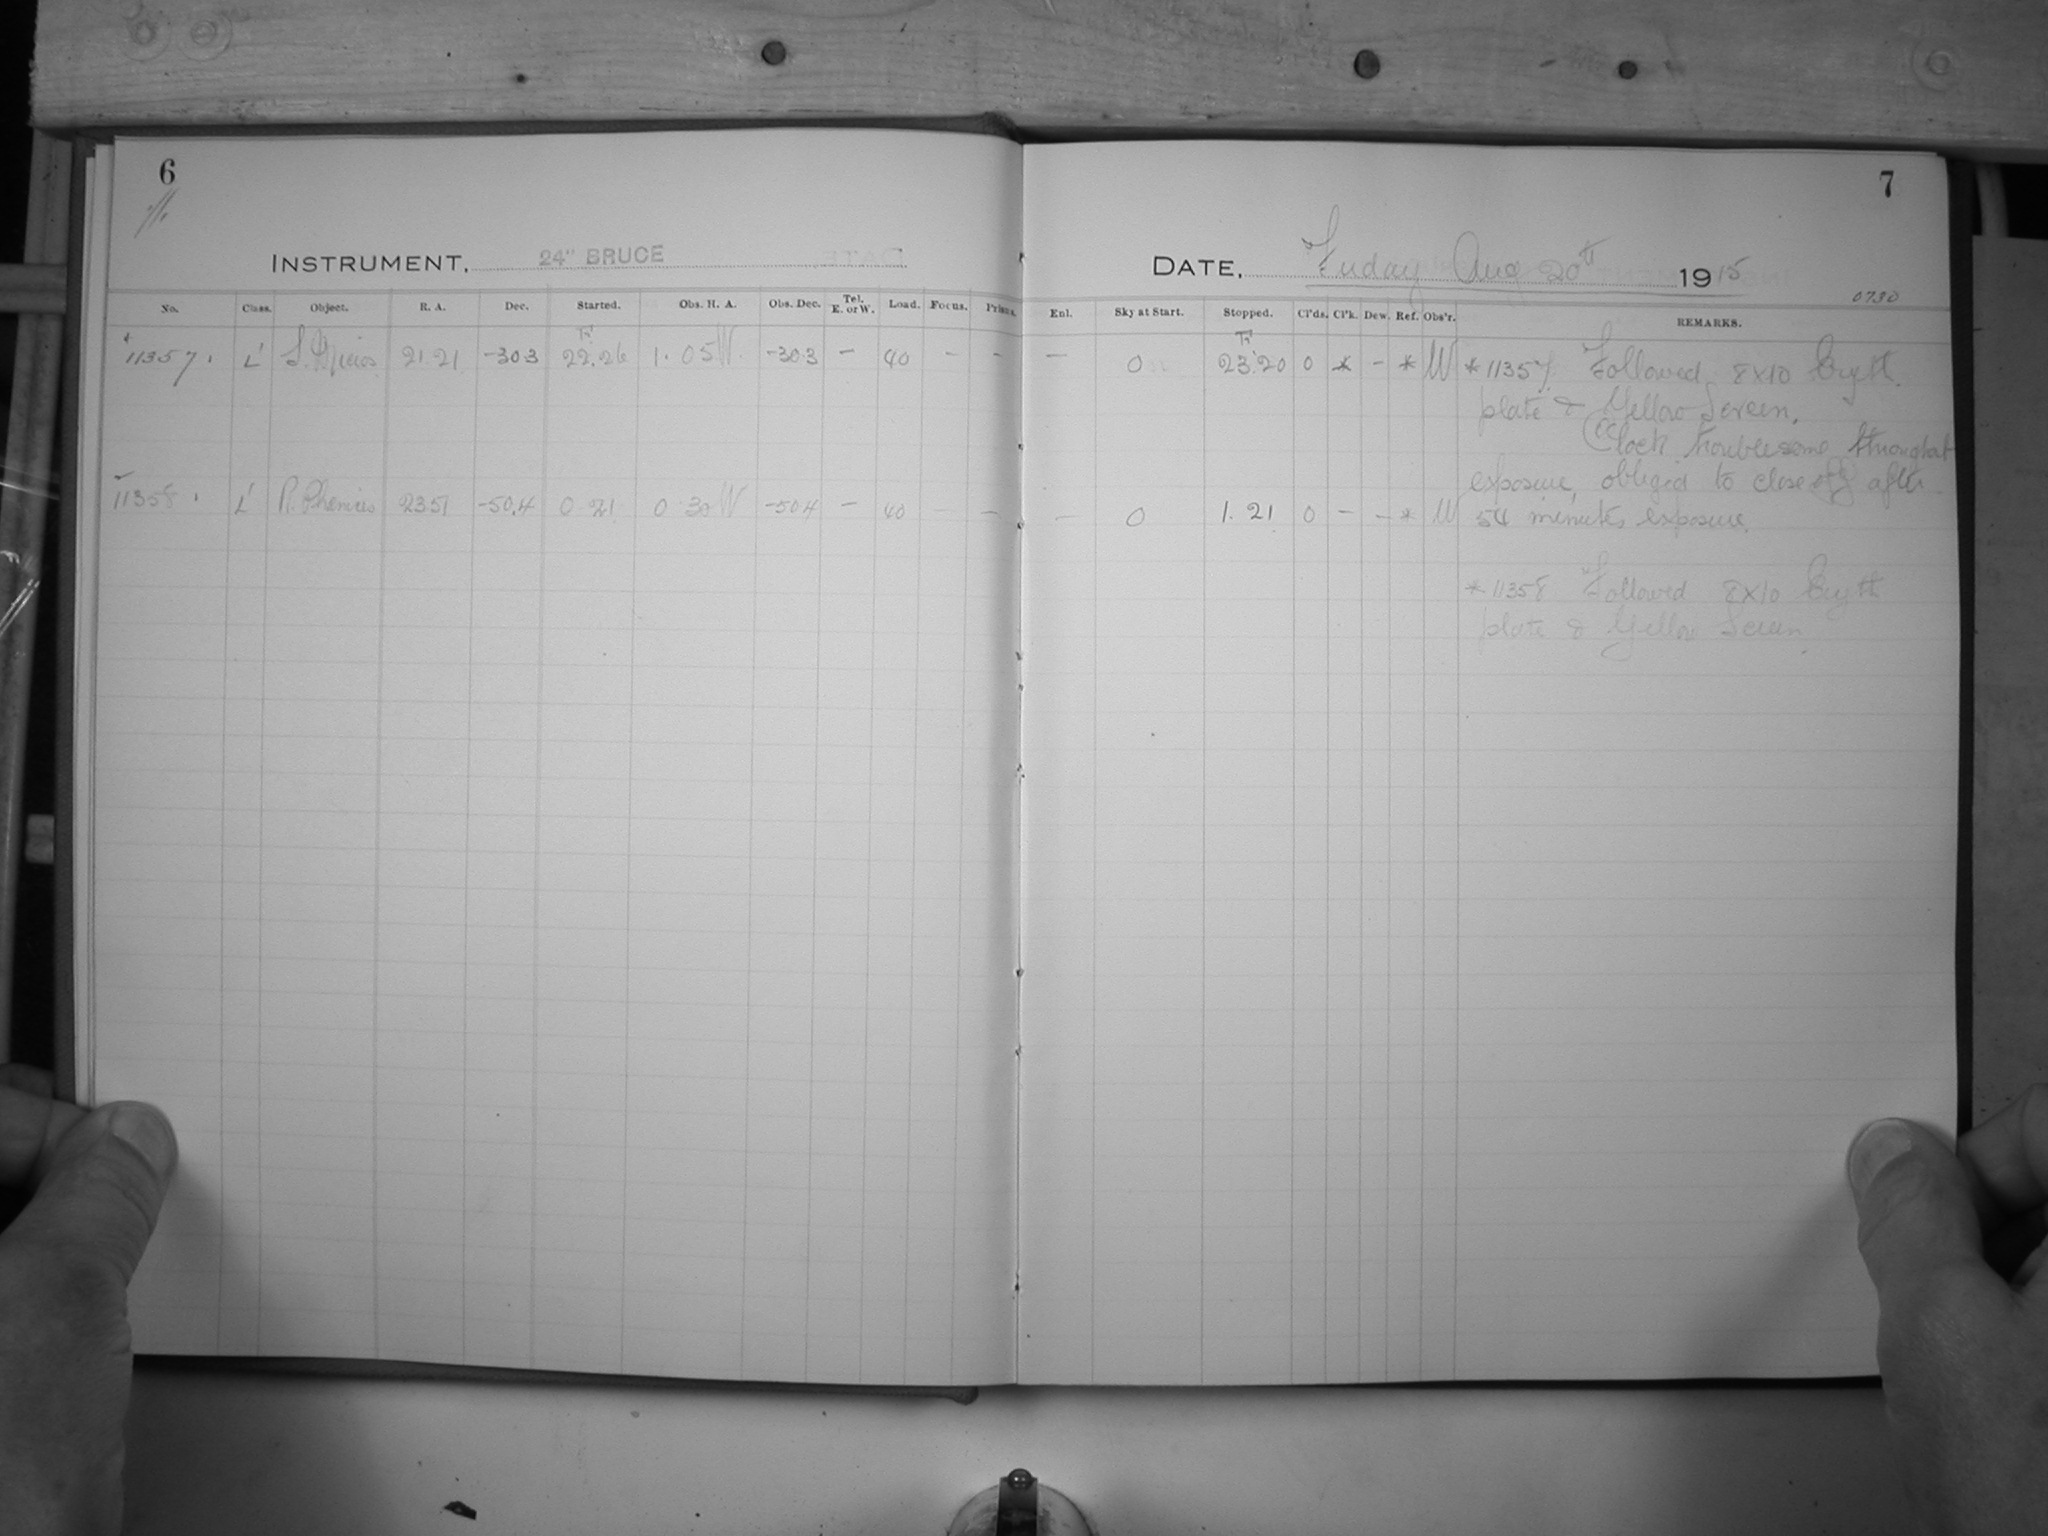 6
INSTRUMENT, 24" BRUCE
No. Class. Object. R. A. Dec. Started. Obs. H. A. Obs. Dec. Tel. E. or W. Load. Focus. Prisms.
11357. L' 21.21 -30.3 22.26 1.05 W -30.3 - 40 - -
11358. L' R. Phenicis 23 51 -50.4 0 21 0 30 W -50.4 - 40 - -
7
DATE, Friday Aug 20th 1915
0730
Enl. Sky at Start. Stopped. Cl'ds. Cl'k. Dew. Ref. Obs'r. REMARKS.
- 0 23.20 0 * - * W *11357 Followed 8x10
plate & Yellow Screen.
Clock troublesome throughout
exposure, obliged to close off after
- 0 1.21 0 - - * W 54 minutes exposure.
*11358 Followed 8x10
plate & Yellow Screen